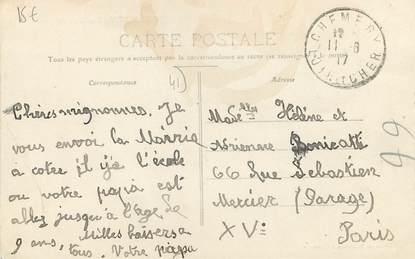 15€
CHEMERY
12
11 - 8
17
LOIR-ET-CHER
CARTE POSTALE
Tous les pays étrangers n'acceptent pas la correspondance au recto (se renseigner
Correspondance
41
Adresse
Chères mignonnes. Je
vous envoi la Mairie
a coter il ja l'école
ou votre papa est
allez jusqu'a l'age de
9 ans, Milles baisers a
tous. Votre papa
Made lles Hélène et
Adrienne Bonicatti
66 Rue Sébastien
Mercier (Garage)
XVe
Paris
99